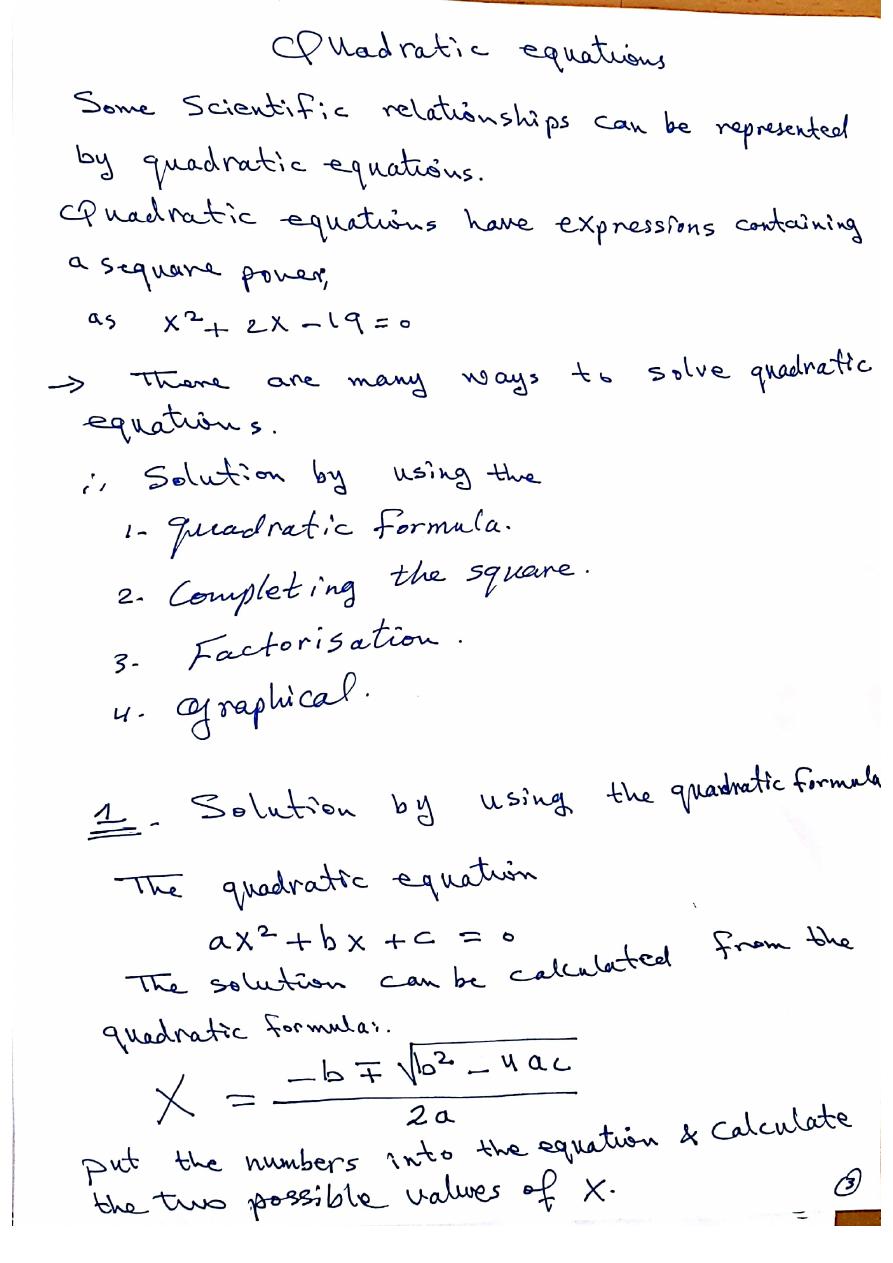 Quadratic equations
Some Scientific relationships can be represented
by quadratic equations.
Quadratic equations have expressions containing
a sequare power,
as x² + 2x - 19 = 0
→ There are many ways to solve quadratic
equations.
∴ Solution by using the
1- quadratic formula.
2- Completing the square.
3- Factorisation.
4- graphical.
1- Solution by using the quadratic formula
The quadratic equation
ax² + bx + c = 0
The solution can be calculated from the
quadratic formula:.
X = (-b ∓ √(b² - 4ac)) / 2a
put the numbers into the equation & Calculate
the two possible values of x.
3